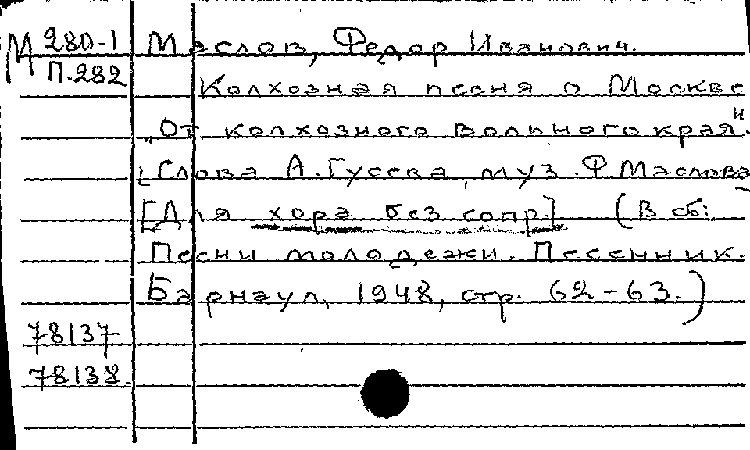 М 280-1 Маслов, Федор Иванович.
П.282
Колхозная песня о Москве
"От колхозного вольного края".
[Слова А.Гусева, муз. Ф Маслова
[Для хора без сопр] (В сб:
Песни молодежи. Песенник.
Барнаул, 1948, стр. 62-63.)
78137
78138